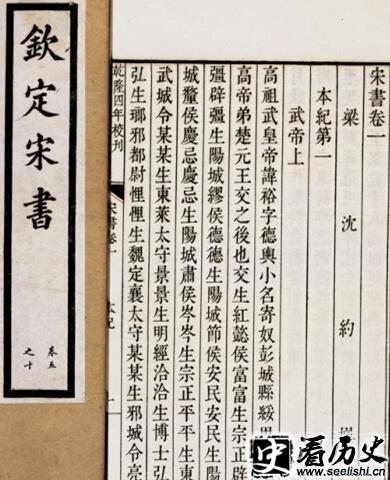 宋書卷一
梁 沈 約
本紀第一
武帝上
高祖武皇帝諱裕字德輿小名寄奴彭城縣綏
高帝弟楚元王交之後也交生紅懿侯富富生宗正辟
彊辟彊生陽城繆侯德德生陽城節侯安民安民生陽
城釐侯慶忌慶忌生陽城肅侯岑岑生宗正平平生東
武城令某某生東萊太守景景生明經洽洽生博士弘
弘生瑯邪都尉悝悝生魏定襄太守某某生邪城令亮
乾隆四年校刊
宋書卷一 本紀 一
欽定宋書
卷五
之十
史看历史
www.seelishi.cn